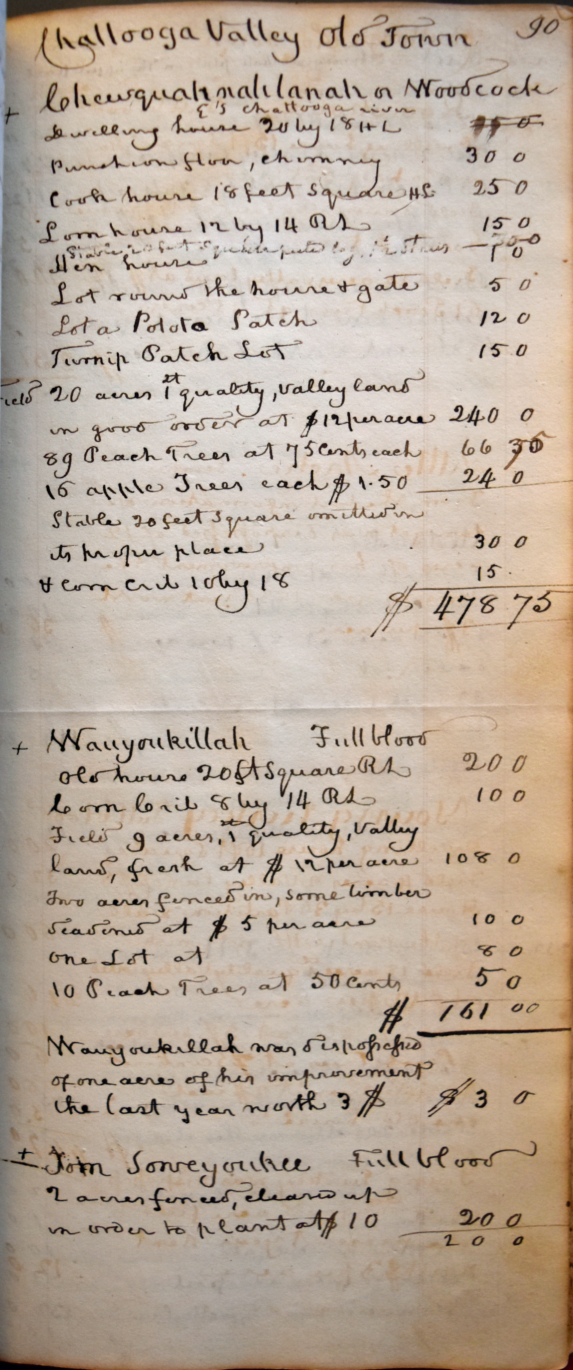 Chattooga Valley Old Town 90
+ Chewquahnahlanah or Woodcock
E's Chattooga river
Dwelling house 20 by 18 HL
Puncheon floor, chimney 30 0
Cook house 18 feet Square HL 25 0
Corn house 12 by 14 RL 15 0
Stable 20 feet Square
Hen house 1 0
Lot round the house & gate 5 0
Lot a Potota Patch 12 0
Turnip Patch Lot 15 0
Field 20 acres 1st quality, valley land
in good order at $12 per acre 240 0
89 Peach Trees at 75 Cents each 66 75
16 apple Trees each $1.50 24 0
Stable 20 feet Square omitted in
its proper place 30 0
& corn crib 10 by 18 15
$ 478 75
+ Wauyoukillah Fullblood
old house 20 ft Square RL 20 0
Corn Crib 8 by 14 RL 10 0
Field 9 acres, 1st quality, Valley
land, fresh at $12 per acre 108 0
Two acres fenced in, some timber
deadened at $5 per acre 10 0
one Lot at 8 0
10 Peach Trees at 50 Cents 5 0
$ 161 00
Wauyoukillah was dispossessed
of one acre of his improvement
the last year worth 3 $ $ 3 0
+ Tom Soweyoukee Fullblood
2 acres fenced, cleared up
in order to plant at $10 20 0
20 0